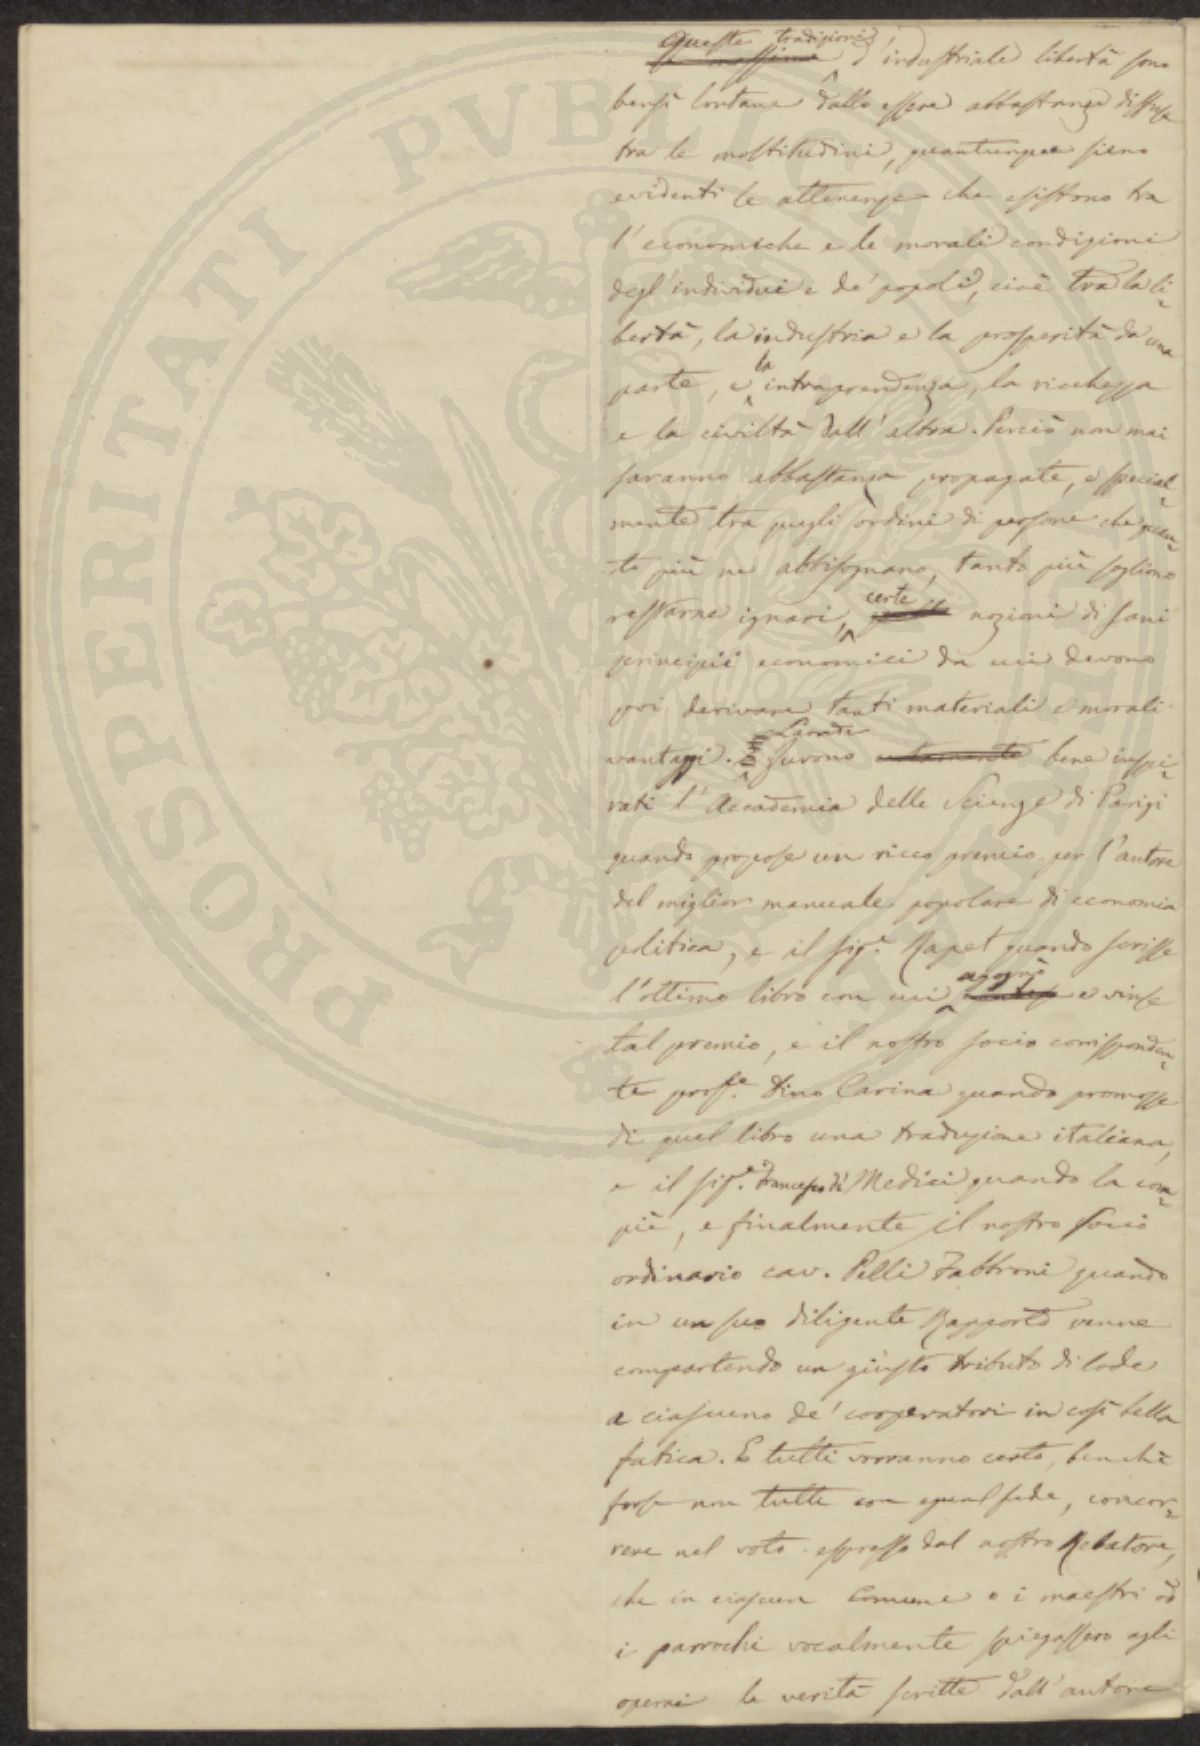 PROSPERITATI PVBLICAE
Queste tradizioni d'industriale libertà sono
bensì lontane dallo essere abbastanza diffuse
tra le moltitudini, quantunque sieno
evidenti le attenenze che esistono tra
l'economiche e le morali condizioni
degl'individui e de' popoli, cioè tra la li=
bertà, la industria e la prosperità da una
parte, e la intraprendenza, la ricchezza
e la civiltà dall'altra. Perciò non mai
saranno abbastanza propagate, e special=
mente tra quegli ordini di persone che quan=
to più ne abbisognano, tanto più sogliono
restarne ignari, certe nozioni di sani
principii economici da cui devono
poi derivare tanti materiali e morali
vantaggi. furono bene inspi=
rati l'Accademia delle Scienze di Parigi
quando propose un ricco premio per l'autore
del miglior manuale popolare di economia
politica, e il sig.r Rapet quando scrisse
l'ottimo libro con cui agognò e vinse
tal premio, e il nostro socio corrisponden=
te prof.e Dino Carina quando promosse
di quel libro una traduzione italiana,
e il sig.e Francesco di Medici quando la com=
piè, e finalmente il nostro socio
ordinario cav. Pelli Fabbroni quando
in un suo diligente Rapporto venne
compartendo un giusto tributo di lode
a ciascuno de' cooperatori in così bella
fatica. E tutti vorranno certo, benchè
forse non tutti con egual fede, concor=
rere nel voto espresso dal nostro Relatore,
che in ciascun Comune o i maestri od
i parrochi vocalmente spiegassero agli
operai le verità scritte dall'autore